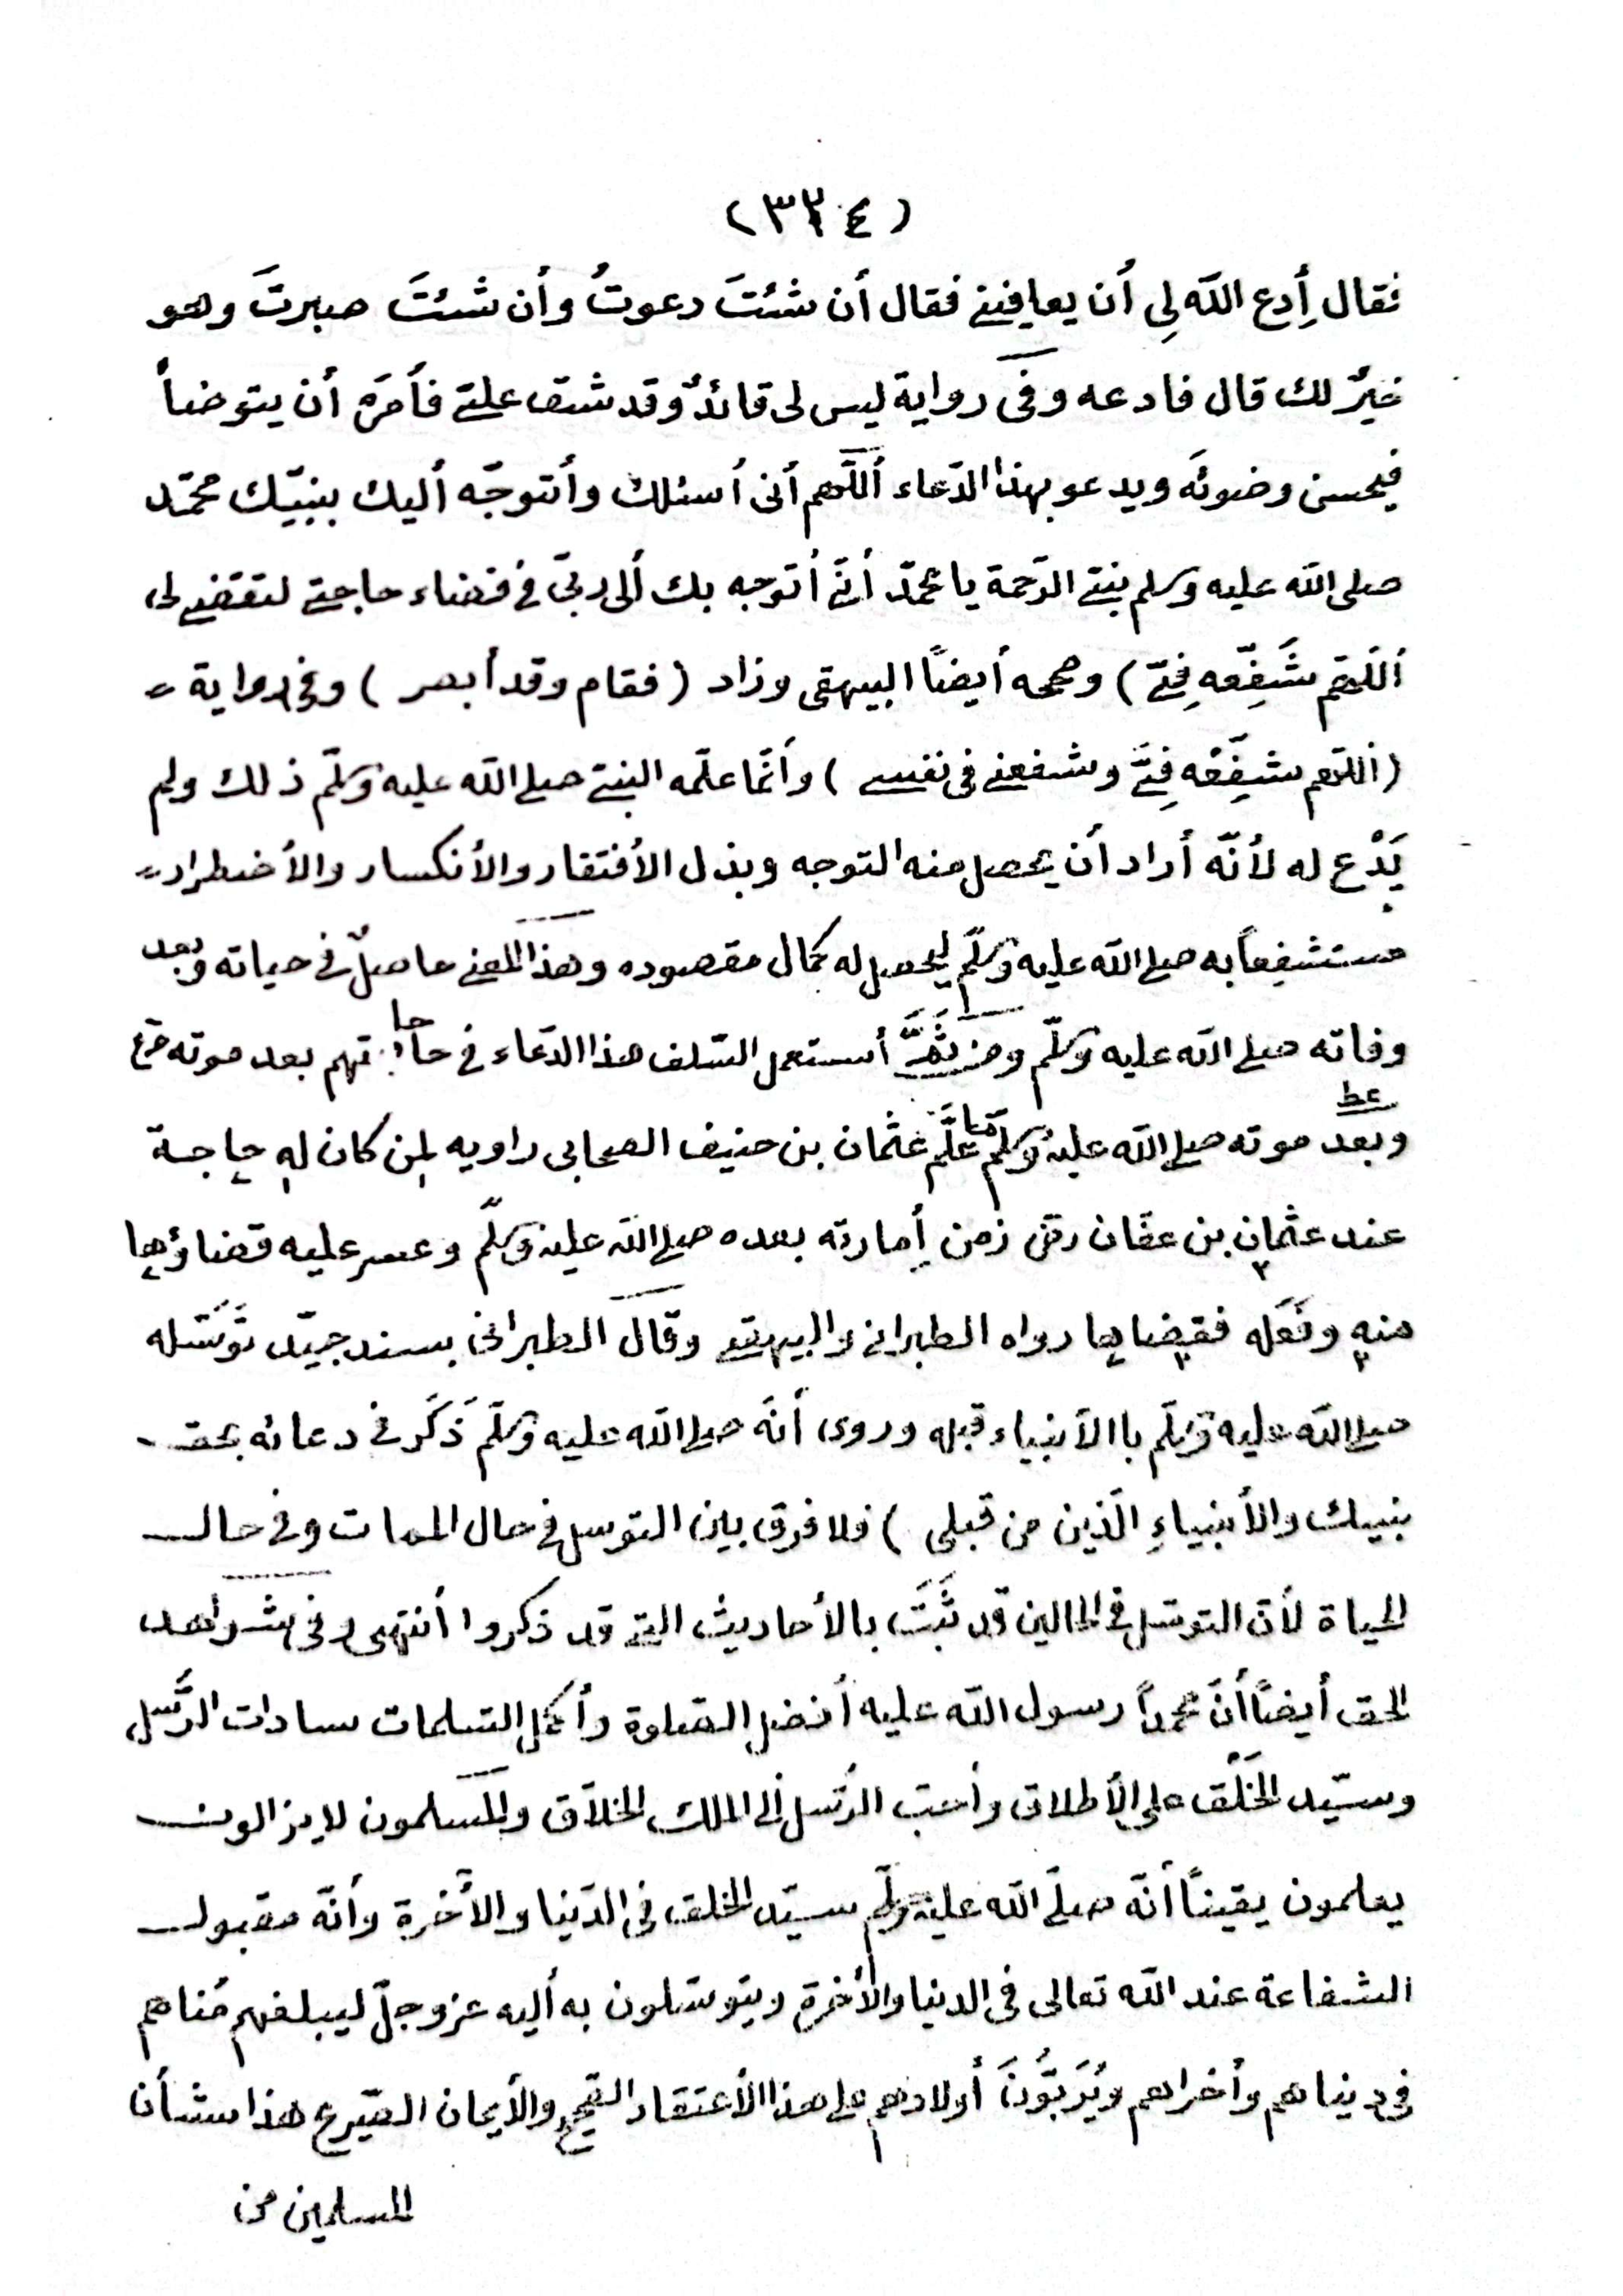 (٣٢٤)
فقال أِدع الله لِى أن يعافينى فقال أن شئتَ دعوتُ وأن شئتَ صبرتَ وهو
خيرٌ لك قال فادعه وفى رواية ليس لى قائدٌ وقد شق علىّ فأمَرَه أن يتوضأ
فيحسن وضوئَه ويدعو بهذا الدّعاء أللّهم أنى أسئلك وأتوجّه أليك بنبيّك محمّد
صلى الله عليه وسلم بنىّ الرّحمة يا محمّد أنّى أتوجه بك ألى ربّى فى قضاء حاجتى لتقضى لى
أللّهم شَفِّعه فِىّ) وصححه أيضاً البيهقى وزاد (فقام وقد أبصر) وفى رواية
(اللّهم شفِّعْه فِىَّ وشفعنى فى نفسى) وأنّما علّمه النبىّ صلى الله عليه وسلّم ذلك ولم
يَدْع له لأنّه أراد أن يحصل منه التوجه وبذل الأفتقار والأنكسار والأضطرار
مستشفِعاً به صلى الله عليه وسلّم ليحصل له كمال مقصوده وهذا المعنى حاصلٌ فى حياته وبعد
وفاته صلى الله عليه وسلّم ومن ثَمَّ أستعمل السّلف هذا الدّعاء فى حاجاتهم بعد موته
وبعد موته صلى الله عليه وسلّم علَّم عثمان بن حنيف الصحابى راويه لمن كان له حاجة
عند عثمان بن عفّان رض زمن أِمارته بعده صلى الله عليه وسلّم وعسر عليه قضاؤها
منه وفَعَله فقضاها رواه الطبرانى والبيهقى وقال الطبرانى بسند جيّد تَوَسّله
صلى الله عليه وسلّم باالأنبياء قبله وروى أنّه صلى الله عليه وسلّم ذَكَر فى دعائه بحق
بنبيك والأنبياءِ الّذين من قبلى) فلا فرق بين التوسل فى حال الممات وفى حال
الحياة لأن التوسّل فى الحالين قد ثَبَتَ بالأحاديث التى قد ذكروا أنتهى وفى شواهد
الحق أيضاً أنّ محمداً رسول الله عليه أفضل الصّلوة وأكمل التسلمات سادات الرّسل
وسيّد الخَلْق على الأطلاق وأحبّ الرّسل ألى الملك الخلاّق والمسلمون لا يزالون
يعلمون يقيناً أنّه صلّى الله عليه وسلّم سيّد الخلق فى الدّنيا والأخرة وأنّه مقبول
الشفاعة عند الله تعالى فى الدنيا والأخرة ويتوسّلون به أليه عز وجلّ ليبلغهم مُناهم
فى دينا هم وأخراهم ويُرَبُّونَ أولادهم على هذا الأعتقاد الصّحيح والأيمان الصّريح هذا شأن
المسلمين من